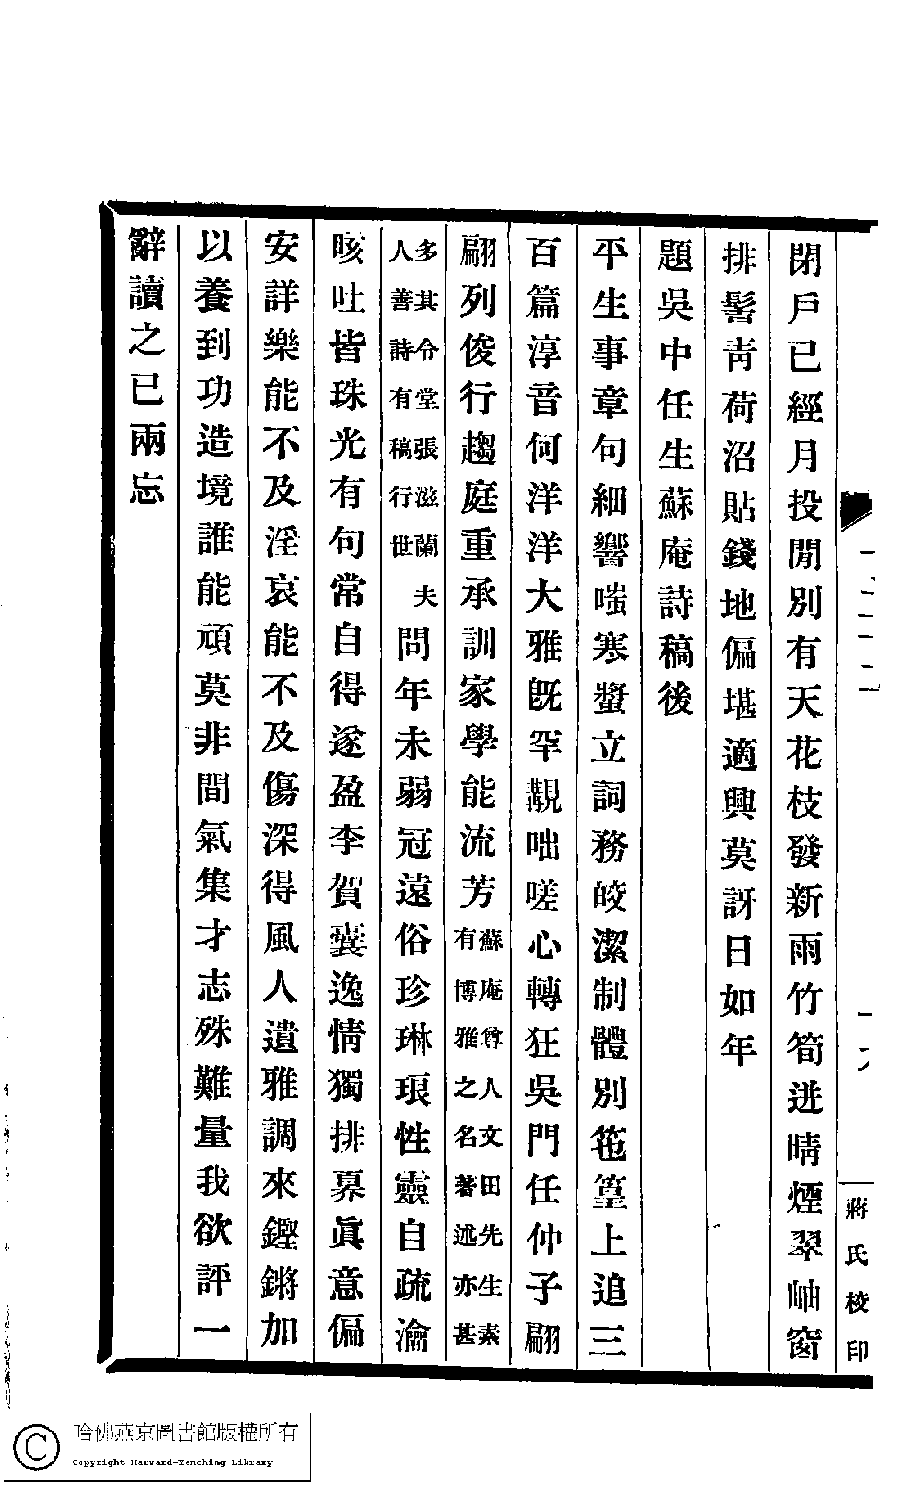 閉戶已經月投閒別有天花枝發新雨竹筍迸晴煙翠岫窗
排髻靑荷沼貼錢地偏堪適興莫訝日如年
題吳中任生蘇庵詩稿後
平生事章句細響嗤寒螿立詞務皎潔制體別笣篁上追三
百篇淳音何洋洋大雅旣罕覯咄嗟心轉狂吳門任仲子翩
翩列俊行趨庭重承訓家學能流芳蘇庵尊人文田先生素
有博雅之名著述亦甚
多其令堂張滋蘭夫
人善詩有稿行世
問年未弱冠遠俗珍琳琅性靈自疏瀹
咳吐皆珠光有句常自得遂盈李賀囊逸情獨排奡眞意偏
安詳樂能不及淫哀能不及傷深得風人遺雅調來鏗鏘加
以養到功造境誰能頑莫非間氣集才志殊難量我欲評一
辭讀之已兩忘
蔣氏校印
哈佛燕京圖書館版權所有
Copyright Harvard-Yenching Library